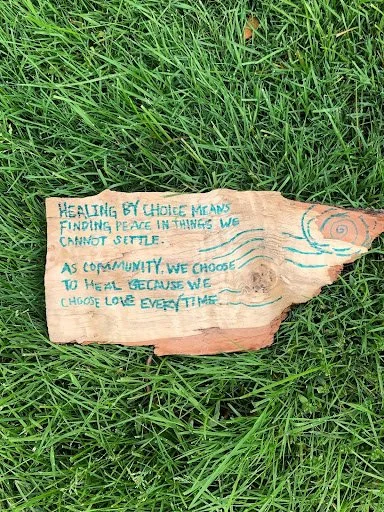 HEALING BY CHOICE MEANS
FINDING PEACE IN THINGS WE
CANNOT SETTLE.
AS COMMUNITY, WE CHOOSE
TO HEAL BECAUSE WE
CHOOSE LOVE EVERYTIME.